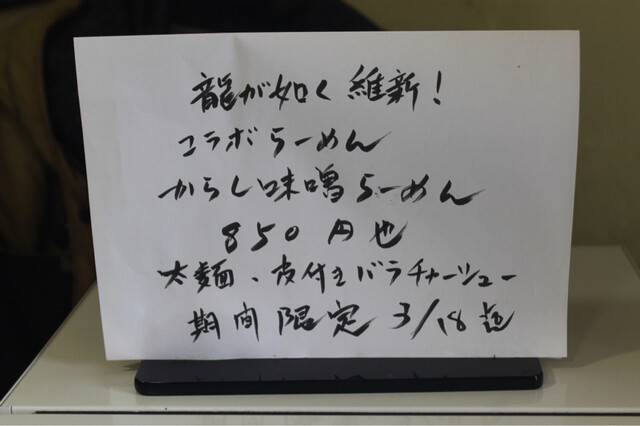 龍が如く維新!
コラボらーめん
からし味噌らーめん
850円也
太麵、皮付きバラチャーシュー
期間限定3/18迄